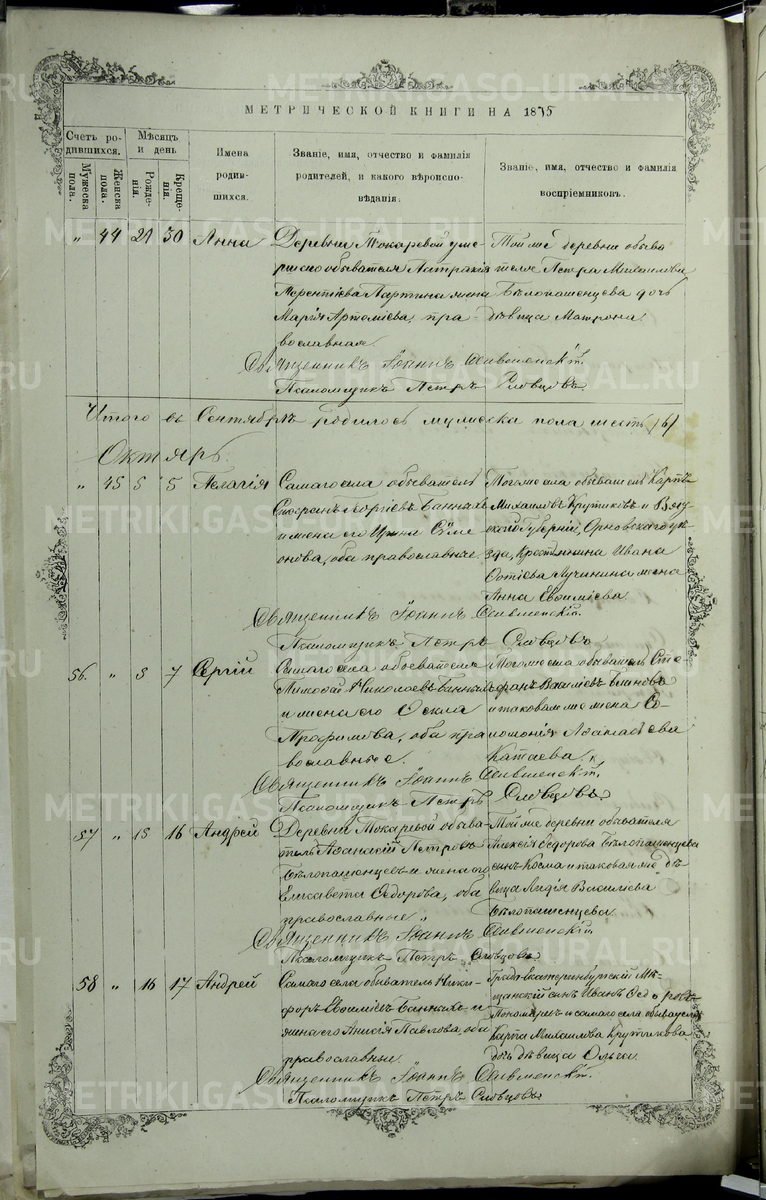 МЕТРИЧЕСКОЙ КНИГИ НА 1875
Счетъ ро-
дившихся.
Мѣсяцъ
и день
Мужеска
пола.
Женска
пола.
Рожде-
нія.
Креще-
нія.
Имена
родив-
шихся.
Званіе, имя, отчество и фамилія
родителей, и какого вѣроиспо-
вѣданія.
Званіе, имя, отчество и фамилія
воспріемниковъ.
" 44 30 Анна
Деревни Токаревой
обывателя
жена
Марія Артеміева, пра-
вославная.
Той же деревни обыва
теля Петра Михаилова
Бѣлопашенцева дочь
дѣвица Матрона.
Священникъ Іоаннъ
Псаломщикъ Петръ Словцовъ
Итого въ Сентябрѣ родилось мужеска пола шесть /6/
Октярь.
" 45 5 5 Пелагія
Самаго села обыватель
Банныхъ
и жена его Симе
онова, оба православные.
Того же села обыватель Карпъ
Михаиловъ Крутиковъ и Вят
ской Губерніи, Орловскаго уѣ
зда, Крестьянина Ивана
Лучинина жена
Анна Евѳиміева
Священникъ Іоаннъ
Псаломщикъ Петръ Словцовъ
56. " 3 7 Сергій
Самаго села обыватель
Тимоѳей Николаевъ Банныхъ
и жена его Ѳекла
Трофимова, оба пра
вославные.
Того же села обыватель Сте
фанъ Василіевъ Блиновъ
и таковая же жена Со
ломонія Аѳанасіева
Катаева.
Священникъ Іоаннъ
Псаломщикъ Петръ Словцовъ
57 " 15 16 Андрей
Деревни Токаревой обыва-
тель Аѳанасій Петровъ
Бѣлопашенцевъ и жена его
Елисавета Ѳедорова, оба
православные.
Той же деревни обывателя
Алексія Ѳедорова Бѣлопашенцева
сынъ Косма и таковая же дѣ
вица Лидія Василіева
Бѣлопашенцева.
Священникъ Іоаннъ
Псаломщикъ Петръ Словцовъ
58 " 16 17 Андрей
Самаго села обыватель Ники-
форъ Евѳиміевъ Банныхъ и
жена его Анисія Павлова, оба
православные.
Градо-Екатеринбургскій Мѣ-
щанскій сынъ Иванъ Ѳедоровъ
Пономаревъ и самаго села обывателя
Карпа Михаилова Крутикова
дочь дѣвица Ольга.
Священникъ Іоаннъ
Псаломщикъ Петръ Словцовъ
METRIKI.GASO-URAL.RU